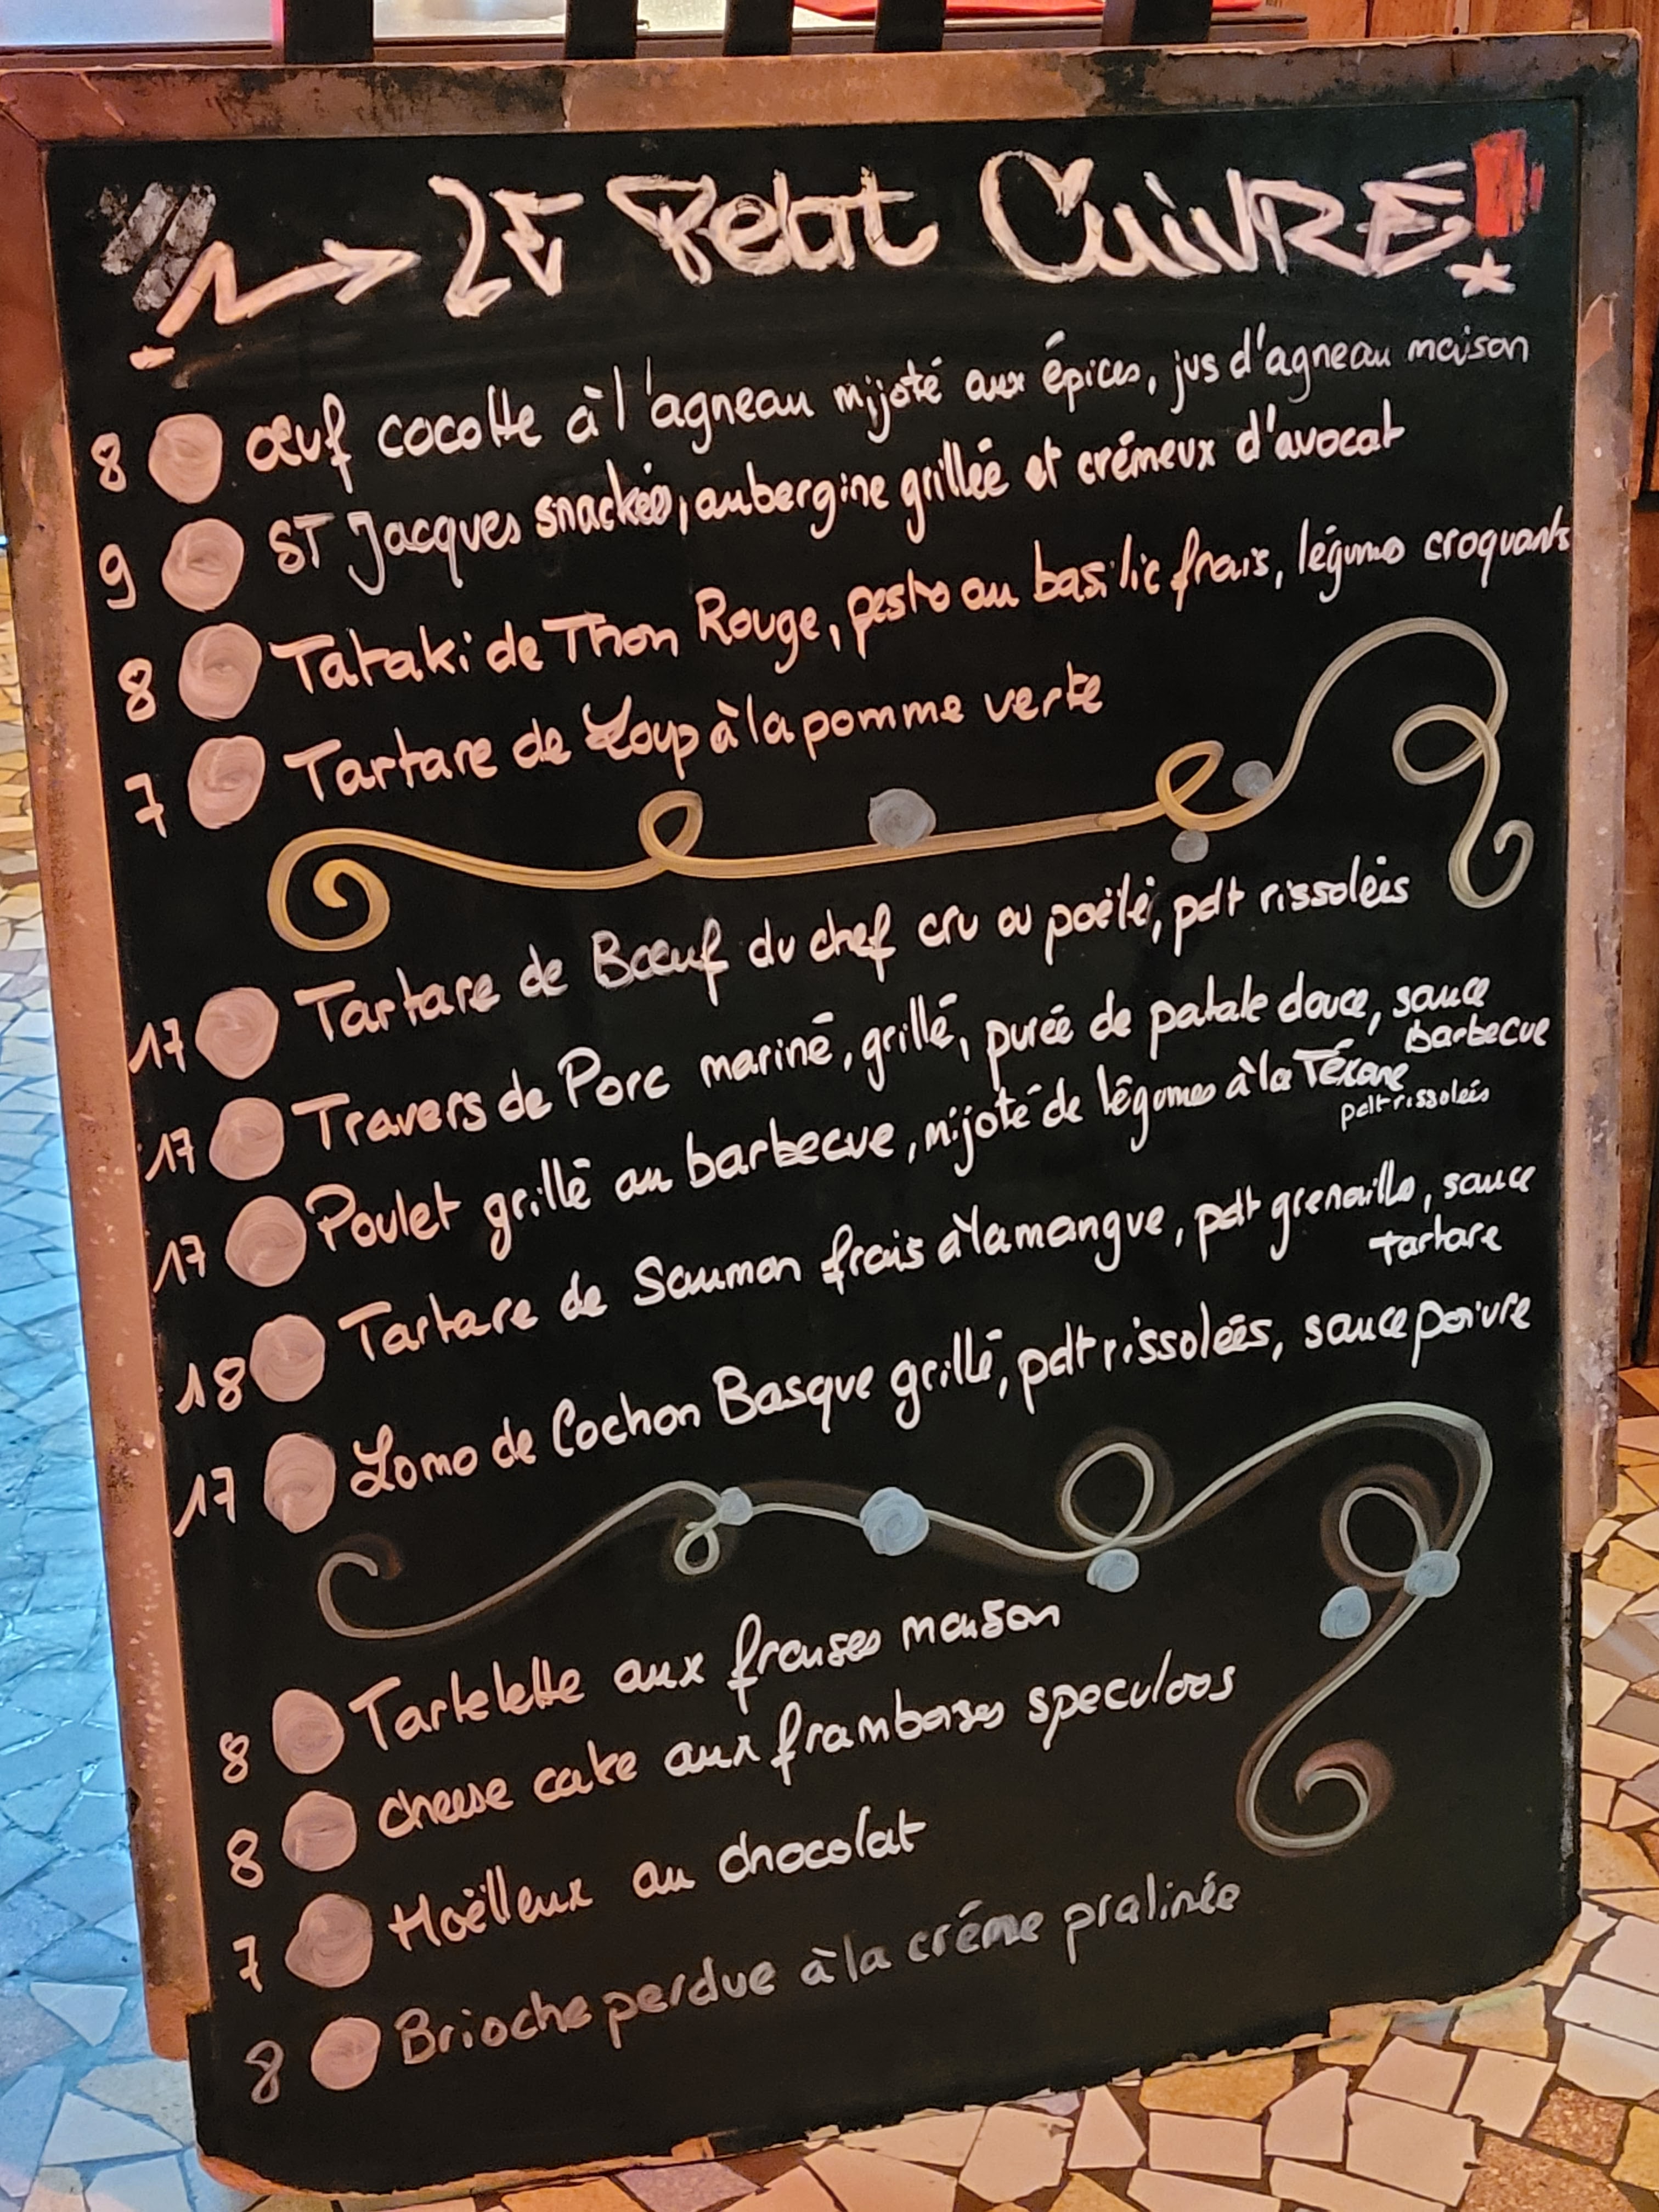 LE Petit CuivRE
8 œuf cocotte à l'agneau mijoté aux épices, jus d'agneau maison
9 ST Jacques snackées, aubergine grillée et crémeux d'avocat
8 Tataki de Thon Rouge, pesto au basilic frais, légumes croquants
7 Tartare de Loup à la pomme verte
17 Tartare de Bœuf du chef cru ou poëlé, pdt rissolées
17 Travers de Porc mariné, grillé, purée de patate douce, sauce
barbecue
17 Poulet grillé au barbecue, mijoté de légumes à la Téxane
pdt rissolées
18 Tartare de Saumon frais à la mangue, pdt grenailles, sauce
tartare
17 Lomo de Cochon Basque grillé, pdt rissolées, sauce poivre
8 Tartelette aux fraises maison
8 cheese cake aux framboises speculoos
7 Moëlleux au chocolat
8 Brioche perdue à la créme pralinée